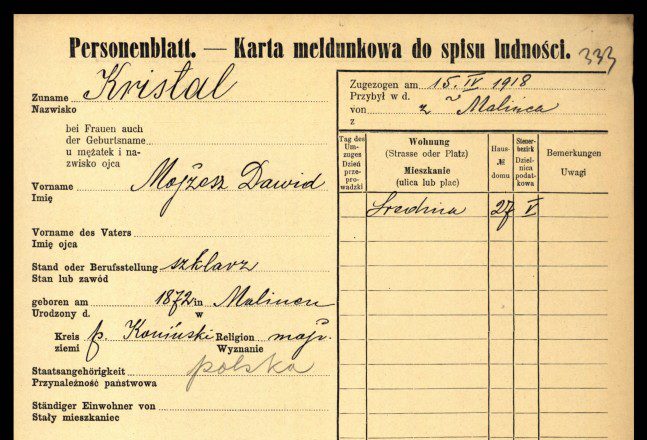 Personenblatt. — Karta meldunkowa do spisu ludności. 333
Zuname Kristal
Nazwisko
bei Frauen auch
der Geburtsname
u mężatek i na-
zwisko ojca
Vorname Mojżesz Dawid
Imię
Vorname des Vaters
Imię ojca
Stand oder Berufsstellung szklarz
Stan lub zawód
geboren am 1872 in
Urodzony d. w
Kreis p. Koniński Religion mojż.
ziemi Wyznanie
Staatsangehörigkeit polska
Przynależność państwowa
Ständiger Einwohner von
Stały mieszkaniec
Zugezogen am 15. IV 1918
Przybył w d.
von z
z
Tag des
Um-
zuges
Dzień
prze-
prowa-
dzki
Wohnung
(Strasse oder Platz)
Mieszkanie
(ulica lub plac)
Haus-
№
domu
Steuer-
bezirk
Dziel-
nica
podat-
kowa
Bemerkungen
Uwagi
Średnia 27 V